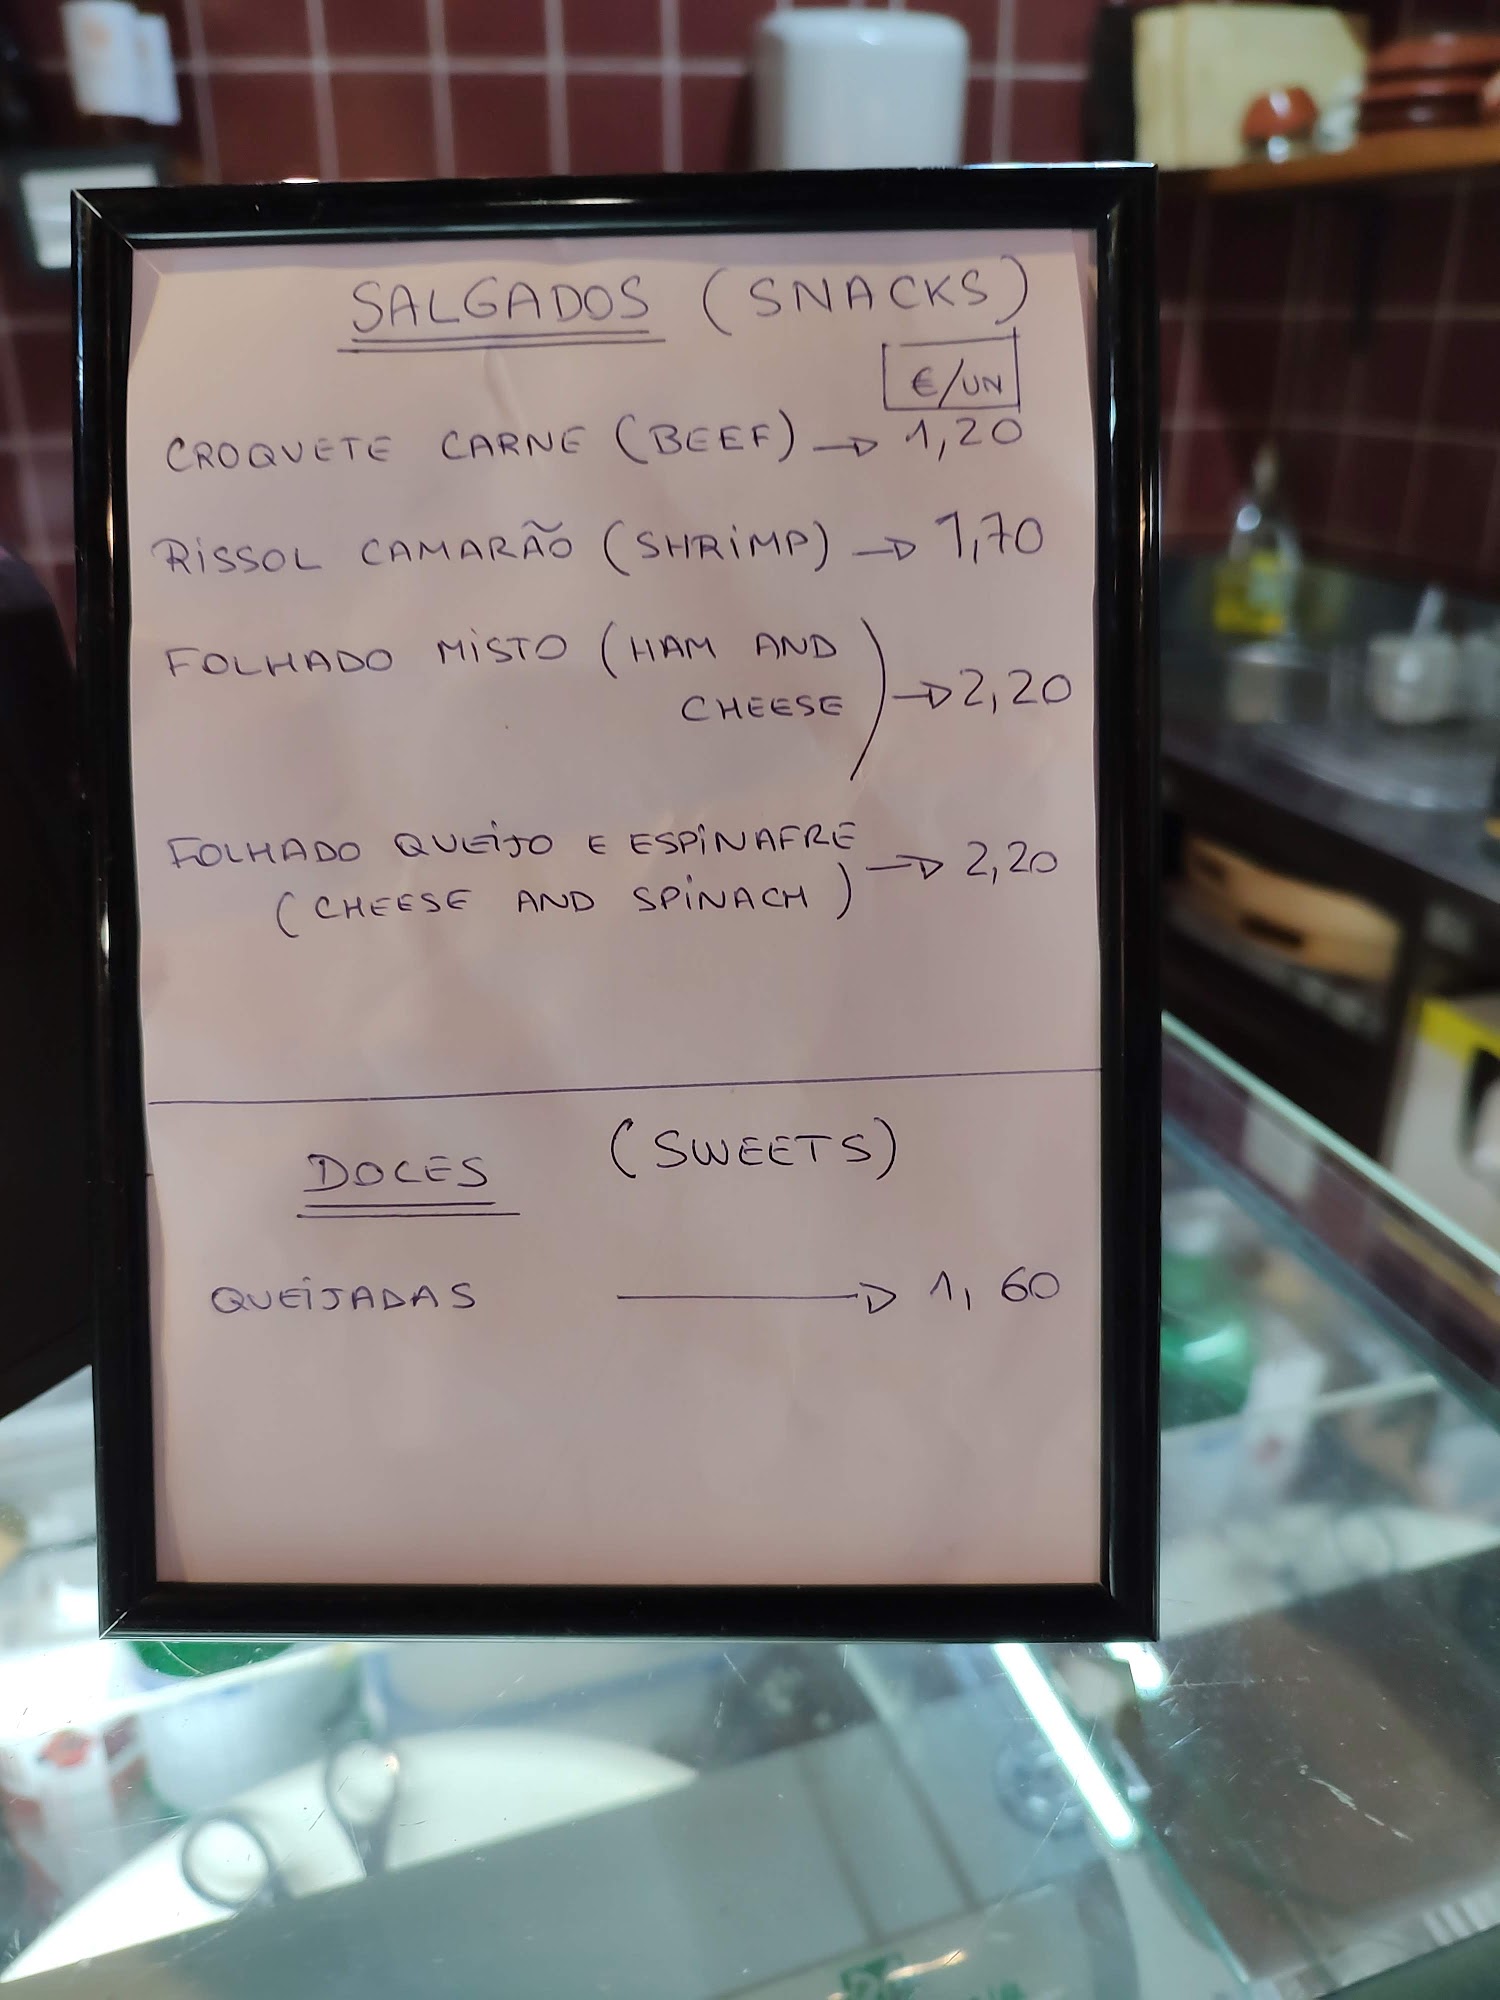 SALGADOS (SNACKS)
€/UN
CROQUETE CARNE (BEEF) → 1,20
RISSOL CAMARÃO (SHRIMP) → 1,70
FOLHADO MISTO (HAM AND
CHEESE) → 2,20
FOLHADO QUEIJO E ESPINAFRE
(CHEESE AND SPINACH) → 2,20
DOCES (SWEETS)
QUEIJADAS → 1,60